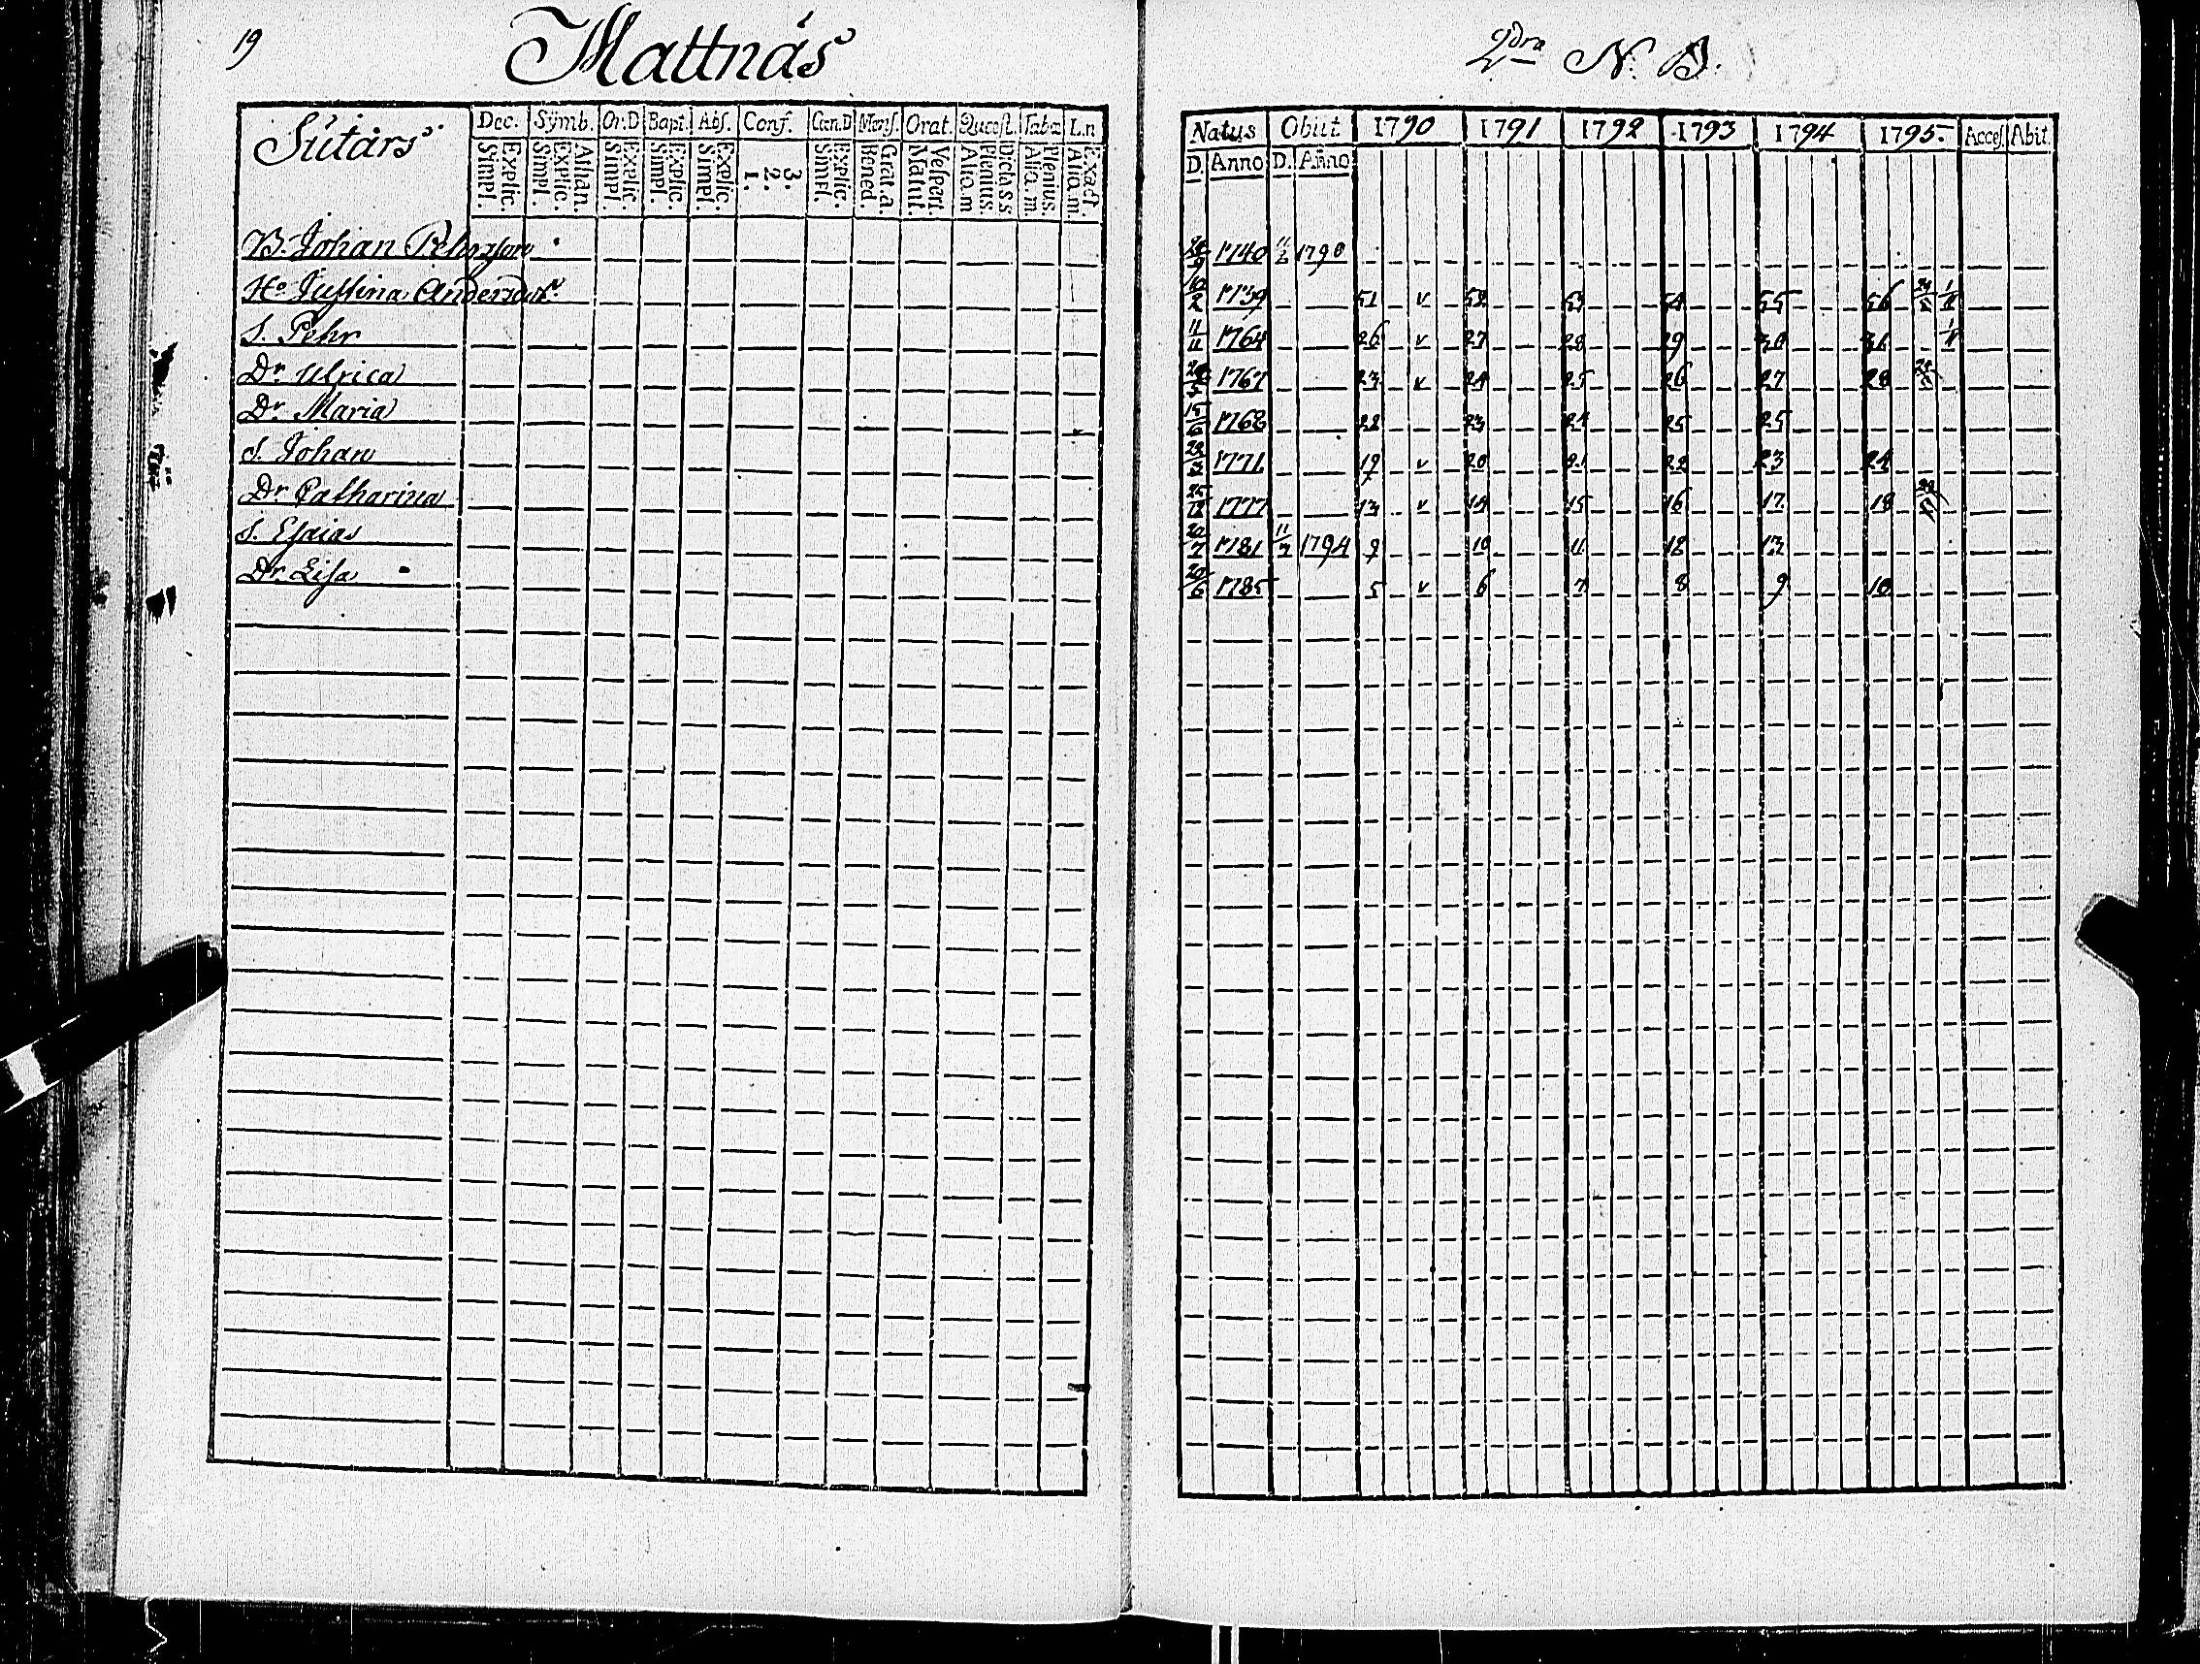 19 Mattnäs
Sutars Dec. Symb. Or.D Bapt. Abs. Conf. Can.D Mens. Orat. Quæst. Tabæ L.n
Simpl. Explic. Simpl. Explic. Athan. Simpl. Explic. Simpl. Explic. Simpl. Explic. 1. 2. 3. Simpl. Explic. Bened. Grat. a. Matut. Vespert. Aliq. m Plenius. Dicta SS Aliq. m. Plenius. Aliq. m. Exact.
B. Johan Pehrsson
H⁰ Justina Andersdr.
S. Pehr
Dr Ulrica
Dr. Maria
S. Johan
Dr Catharina
S. Esaias
Dr. Lisa
2dra N. B.
Natus Obiit 1790 1791 1792 1793 1794 1795. Acces. Abit.
D. Anno D. Anno
1740 1790
10/2 1739 51 v 52 53 54 55 56
11/11 1764 26 v 27 28 29 30 31
1767 23 v 24 25 26 27 28
15/6 1768 22 23 24 25 25
1771 19 v 20 21 22 23 24
25/12 1777 13 v 14 15 16 17 18
20/7 1781 1794 9 10 11 12 13
20/6 1785 5 v 6 7 8 9 10